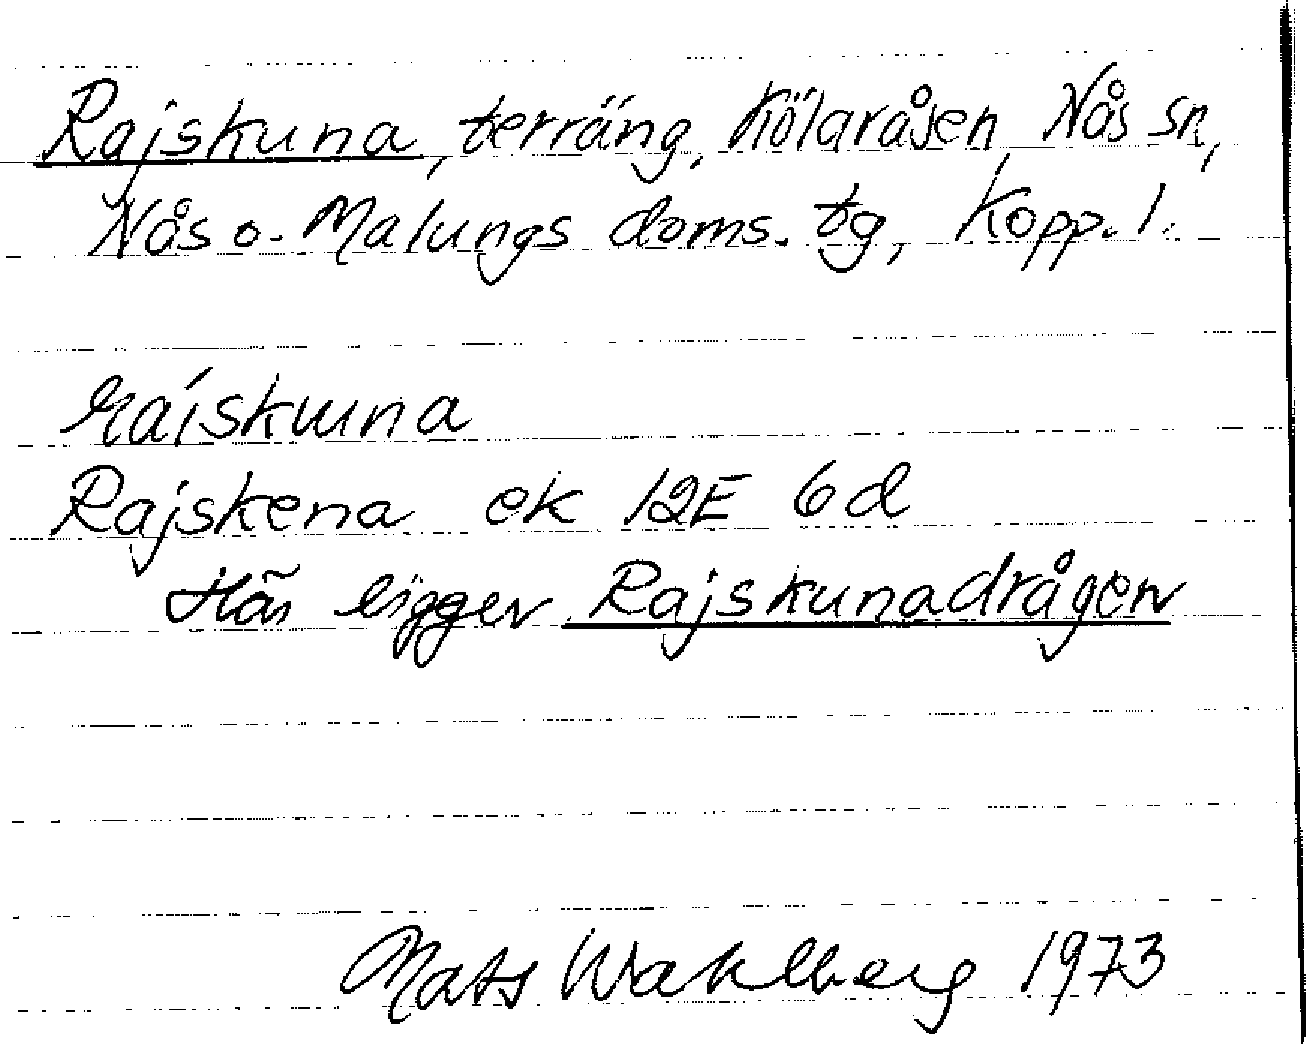 Rajskuna, terräng, Kölaråsen, Nås sn,
Nås o. Malungs doms. tg, Kopp. l.
ráiskɯna
Rajskena ek 12E 6d
Här ligger Rajskunadrågen
Mats Wahlberg 1973